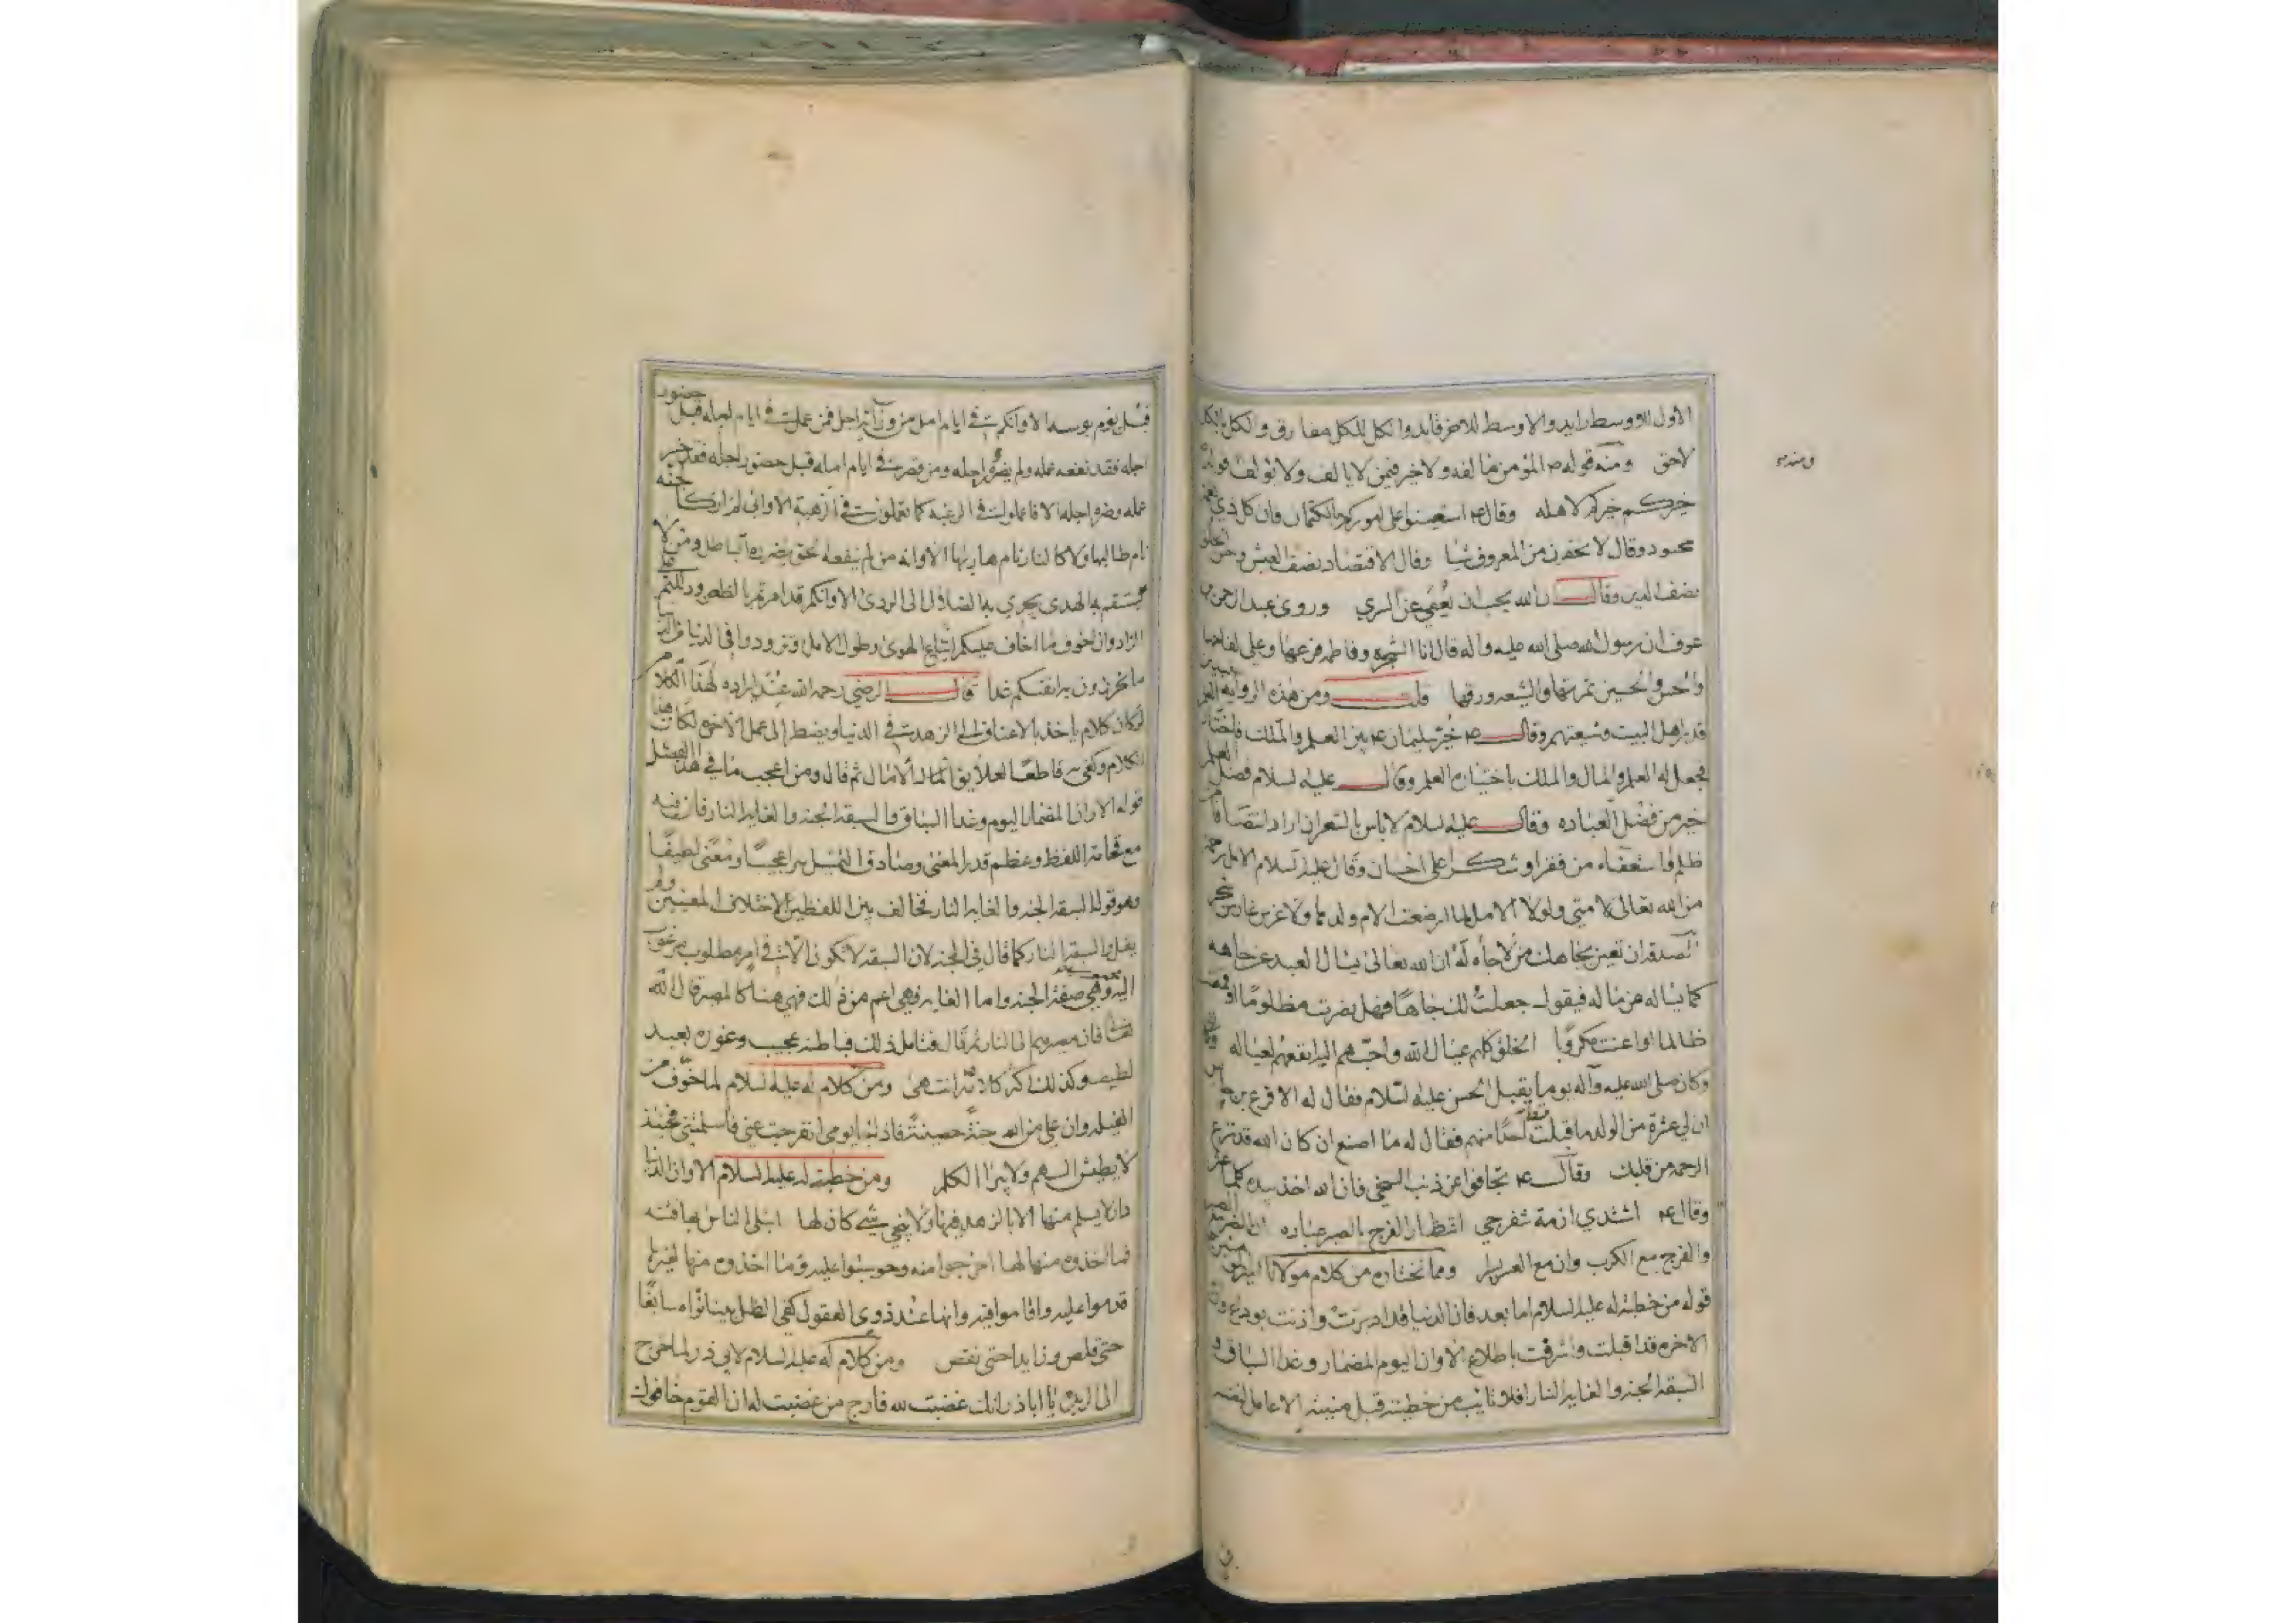 الاول للاوسط رايد والاوسط للاخر قايد والكل للكل مفارق والكل بالكل
لاحق ومنه قوله ص المؤمن مالفه ولا خير فيمن لا يالف ولا يؤلف قوله
خيركم خيركم لاهله وقال ع استعينوا على اموركم بالكتمان فان كل ذي نعمة
محسود وقال لا تحقرن من المعروف شيا وقال الاقتصاد نصف العيش وحسن الخلق
نصف الدين وقال ان الله يحب ان يعفى عن السري وروى عبد الرحمن بن
عوف ان رسول الله صلى الله عليه واله قال انا الشجرة وفاطمة فرعها وعلى لقاحها
والحسن والحسين ثمرتها والشيعه ورقها قلت ومن هذه الرواية
قدر اهل البيت وشيعتهم وقال ص خير سليمان ع بين العلم والملك فاختار العلم
فجعل له العلم والمال والملك باختياره العلم وقال عليه السلام فضل العلم
خير من فضل العباده وقال عليه السلام لا باس بالشعر لمن اراد انتصافا من
ظلم واستغناء من فقر او شكرا على احسان وقال عليه السلام الامل رحمة
من الله تعالى لامتي ولولا الامل لما ارضعت الام ولدها ولا غرس غارس شجر
الصدقه ان تعين بجاهك من لا جاه له ان الله تعالى يسال العبد عن جاهه
كما يساله عن ماله فيقول جعلت لك جاها فهل نصرت مظلوما او قمعت
ظالما او اعنت مكروبا الخلق كلهم عيال الله واحبهم اليه انفعهم لعياله
وكان صلى الله عليه وآله يوما يقبل الحسن عليه السلام فقال له الاقرع بن حابس
ان لي عشرة من الولد ما قبلت احدا منهم فقال له ما اصنع ان كان الله قد نزع
الرحمه من قلبك وقال ع تجافوا عن ذنب السخي فان الله اخذ بيده كلما عثر
وقال ع اشتدي ازمة تنفرجي انتظار الفرج بالصبر عباده ان النصر مع الصبر
والفرج مع الكرب وان مع العسر يسرا ومما نختاره من كلام مولانا امير المؤمنين
قوله من خطبة له عليه السلام اما بعد فان الدنيا قد ادبرت واذنت بوداع وان
الاخره قد اقبلت واشرفت باطلاع الا وان اليوم المضمار وغدا السباق و
السبقه الجنه والغايه النار افلا تايب من خطيئته قبل منيته الا عامل لنفسه
ومنه
قبل يوم بوسه الا وانكم في ايام امل من ورائه اجل فمن عمل في ايام امله قبل حضور
اجله فقد نفعه عمله ولم يضره اجله ومن قصر في ايام امله قبل حضور اجله فقد خسر
عمله وضره اجله الا فاعملوا في الرغبه كما تعملون في الرهبة الا واني لم ار كالجنة
نام طالبها ولا كالنار نام هاربها الا وانه من لم ينفعه الحق يضره الباطل ومن لا
يستقم به الهدى يجري به الضلال الى الردى الا وانكم قد امرتم بالظعن ودللتم على
الزاد وان اخوف ما اخاف عليكم اتباع الهوى وطول الامل وتزودوا في الدنيا من الدنيا
ما تحرزون به انفسكم غدا قال الرضي رحمه الله عند ايراده لهذا الكلام
لو كان كلام ياخذ بالاعناق الى الزهد في الدنيا ويضطر الى عمل الاخره لكان هذا
الكلام وكفى به قاطعا لعلايق الامال ثم قال ومن اعجب ما في هذا الفصل
قوله الا وان المضمار اليوم وغدا السباق والسبقه الجنه والغايه النار فان فيه
مع فخامة اللفظ وعظم قدر المعنى وصادق التمثيل سرا عجيبا ومعنى لطيفا
وهو قوله السبقه الجنه والغايه النار فخالف بين اللفظين لاختلاف المعنيين ولم
يقل والسبقه النار كما قال في الجنه لان السبقه لا تكون الا في امر مطلوب مرغوب
اليه وهي صفة الجنه واما الغايه فهي اعم من ذلك فهي هنا كالمصير قال الله
تعالى فان مصيركم الى النار ثم قال فتامل ذلك فباطنه عجيب وغوره بعيد
لطيف وكذلك اكثر كلامه انتهى ومن كلام له عليه السلام لما خوف من
الغيله وان على من الله جنة حصينة فاذا جا يومي انفرجت عني فاسلمتني فحينئذ
لا يطيش السهم ولا يبرا الكلم ومن خطبة له عليه السلام الا وان الدنيا
دار لا يسلم منها الا بالزهد فيها ولا ينجي شي كان لها ابتلى الناس بها فتنه
فما اخذوه منها لها اخرجوا منه وحوسبوا عليه وما اخذوه منها لغيرها
قدموا عليه واقاموا فيه وانها عند ذوي العقول كفي الظل بينا تراه سابغا
حتى قلص وزايدا حتى نقص ومن كلام له عليه السلام لابي ذر لما اخرج
الى الربذه يا ابا ذر انك غضبت لله فارج من غضبت له ان القوم خافوك